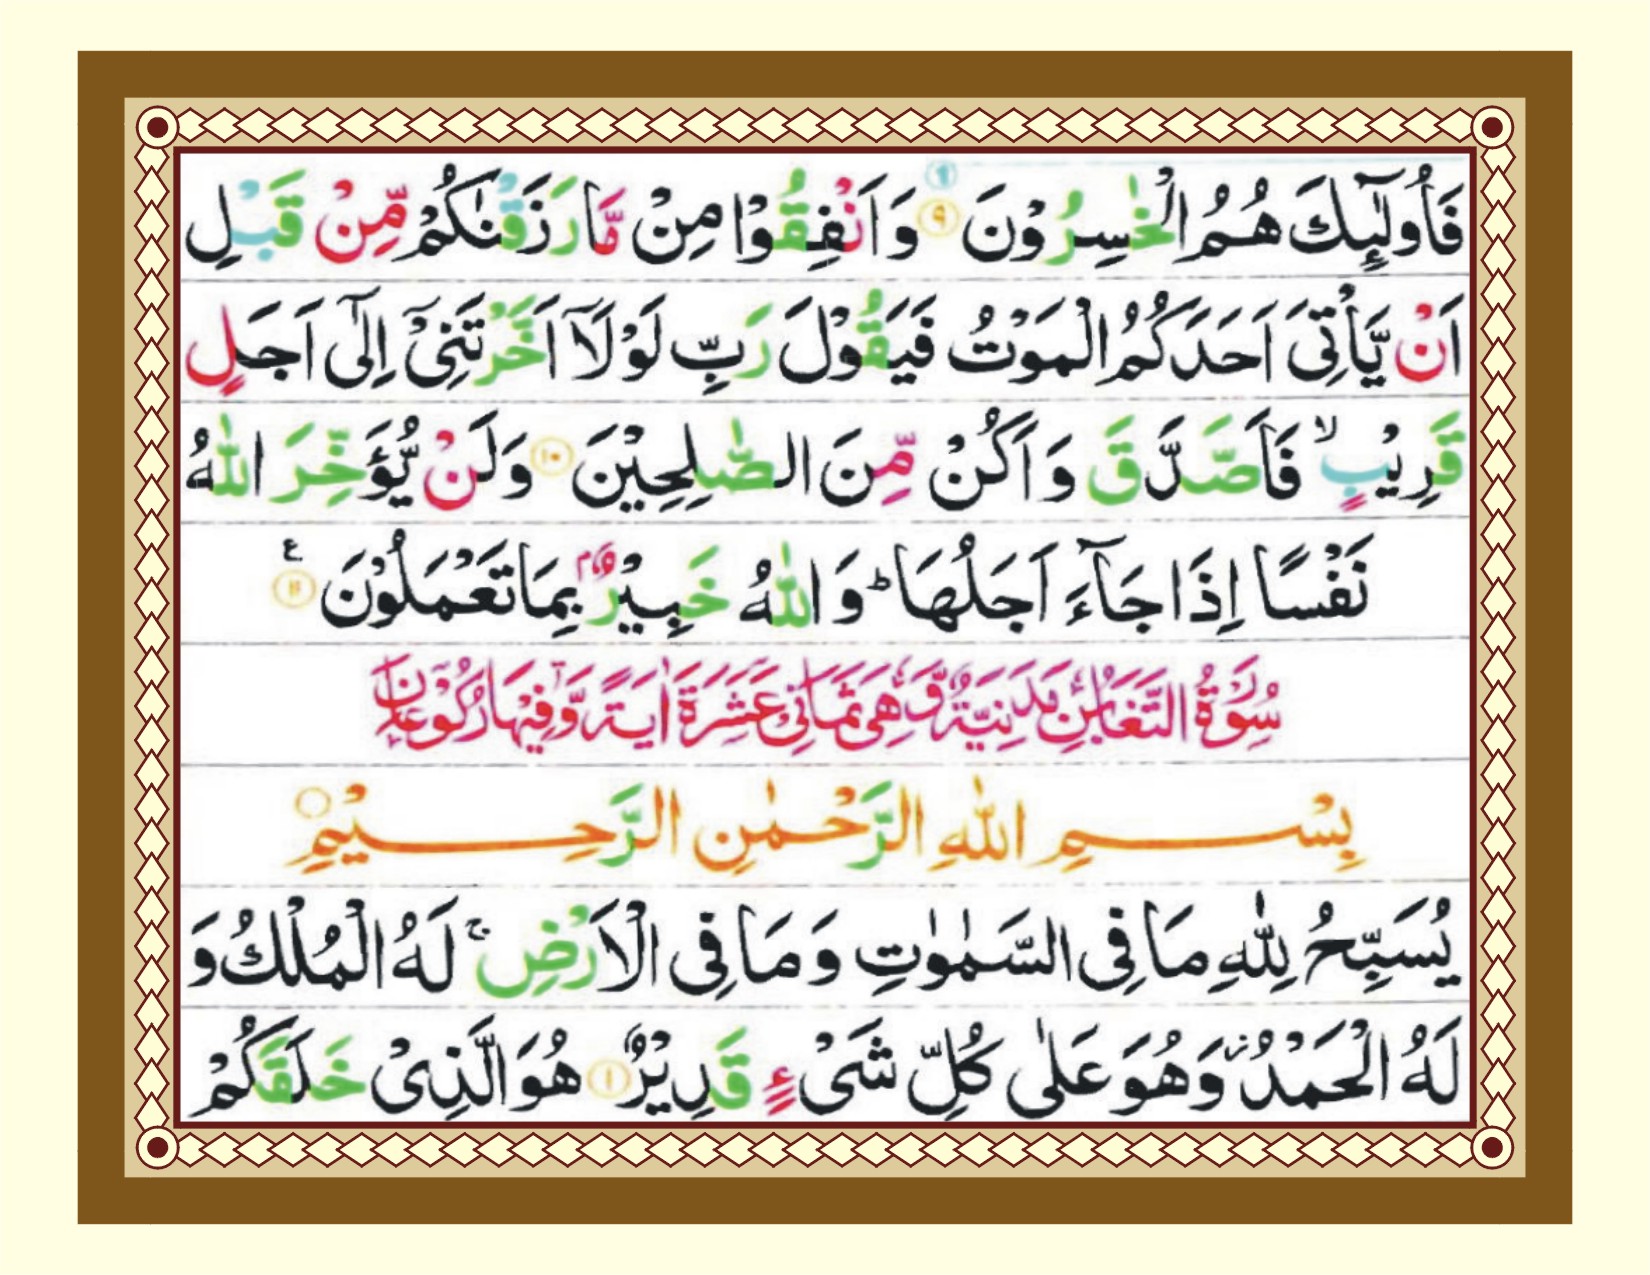 فَاُولٰٓئِكَ هُمُ الْخٰسِرُوْنَ ﴿۹﴾ وَاَنْفِقُوْا مِنْ مَّا رَزَقْنٰكُمْ مِّنْ قَبْلِ
اَنْ يَّاْتِىَ اَحَدَكُمُ الْمَوْتُ فَيَقُوْلَ رَبِّ لَوْلَاۤ اَخَّرْتَنِىْۤ اِلٰٓى اَجَلٍ
قَرِيْبٍ ۙ فَاَصَّدَّقَ وَاَكُنْ مِّنَ الصّٰلِحِيْنَ ﴿۱۰﴾ وَلَنْ يُّؤَخِّرَ اللّٰهُ
نَفْسًا اِذَا جَآءَ اَجَلُهَا ؕ وَاللّٰهُ خَبِيْرٌۢ بِمَا تَعْمَلُوْنَ ﴿۱۱﴾ ع
سُوْرَةُ التَّغَابُنِ مَدَنِيَّةٌ وَّهِىَ ثَمَانِىْ عَشْرَةَ اٰيَةً وَّفِيْهَا رُكُوْعَانِ
بِسْمِ اللّٰهِ الرَّحْمٰنِ الرَّحِيْمِ ○
يُسَبِّحُ لِلّٰهِ مَا فِى السَّمٰوٰتِ وَمَا فِى الْاَرْضِ ۚ لَهُ الْمُلْكُ وَ
لَهُ الْحَمْدُ ؗ وَهُوَ عَلٰى كُلِّ شَىْءٍ قَدِيْرٌ ﴿۱﴾ هُوَ الَّذِىْ خَلَقَكُمْ